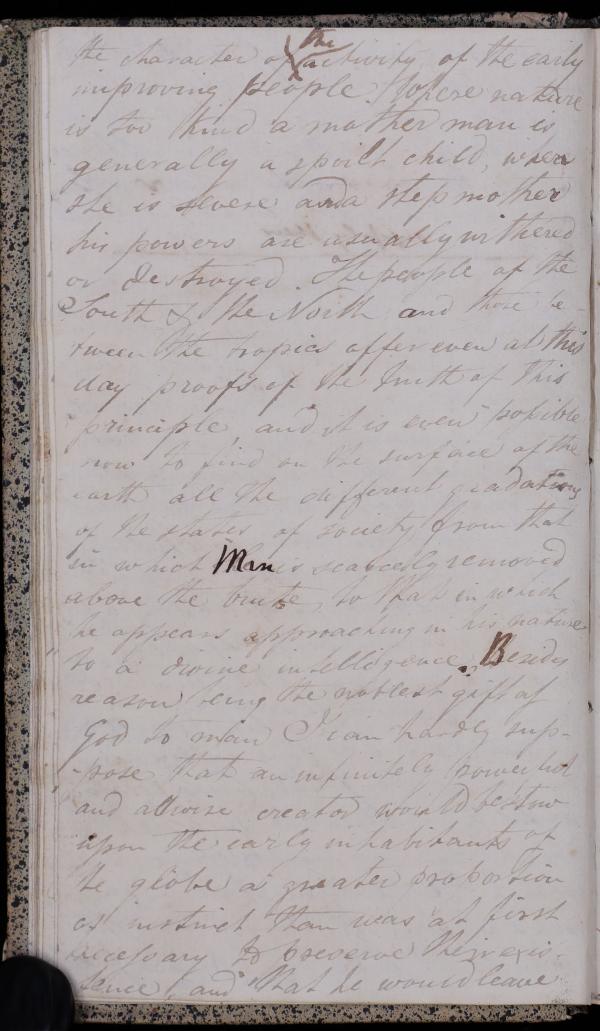 the
the character of activity of the early
improving people. Where nature
is too kind a mother man is
generally a spoilt child, when
she is severe and a stepmother
his powers are usually withered
or destroyed. The people of the
South & the North and those be-
tween the tropics offer even at this
day proofs of the truth of this
principle and it is even possible
now to find on the surface of the
earth all the different gradations
of the states of society from that
in which Man is scarcely removed
above the brute, to that in which
he appears approaching in his nature
to a divine intelligence. Besides
reason being the noblest gift of
God to man I can hardly sup-
-pose that an infinitely powerful
and allwise creator would bestow
upon the early inhabitants of
the globe a greater proportion
of instinct than was at first
necessary to preserve their exis-
tence, and that he would leave